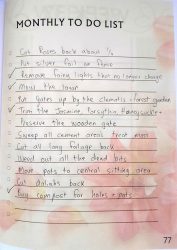 MONTHLY TO DO LIST
Cut Roses back about 1/3
Put silver foil on fence
✓ Remove fairy lights that no longer charge
✓ Mow the lawn
Put gates up by the clematis + forest garden
Trim the Jasmine, Forsythia, Honeysuckle +
Preserve the wooden gate
Sweep all cement areas treat moss
Cut all long foliage back
Weed out all the dead bits
Move pots to central sitting area
✓ Cut back
✓ Buy compost for holes + pots
77